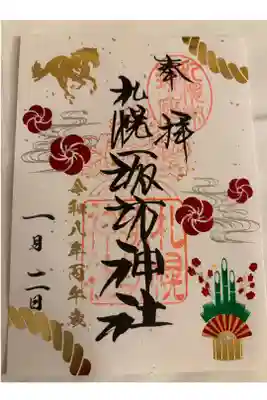 奉拝
札幌
諏訪神社
令和八年丙午歳
一月二日